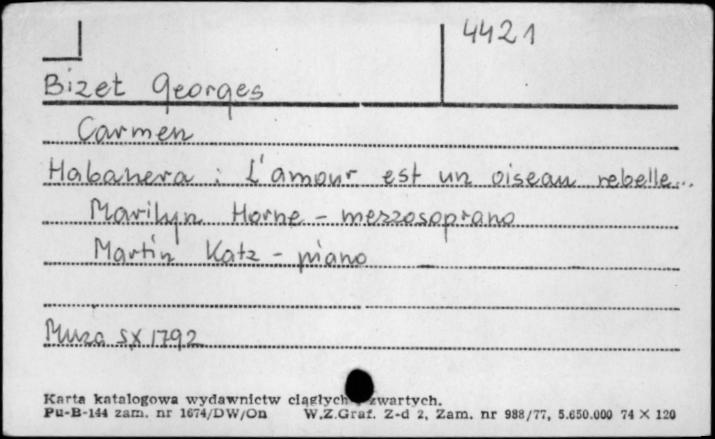 4421
Bizet Georges
Carmen
Habanera : L'amour est un oiseau rebelle...
Marilyn Horne - mezzosoprano
Martin Katz - piano
Muza SX 1792
Karta katalogowa wydawnictw ciągłych zwartych.
Pu-B-144 zam. nr 1674/DW/On W.Z.Graf. Z-d 2, Zam. nr 988/77, 5.650.000 74 × 120